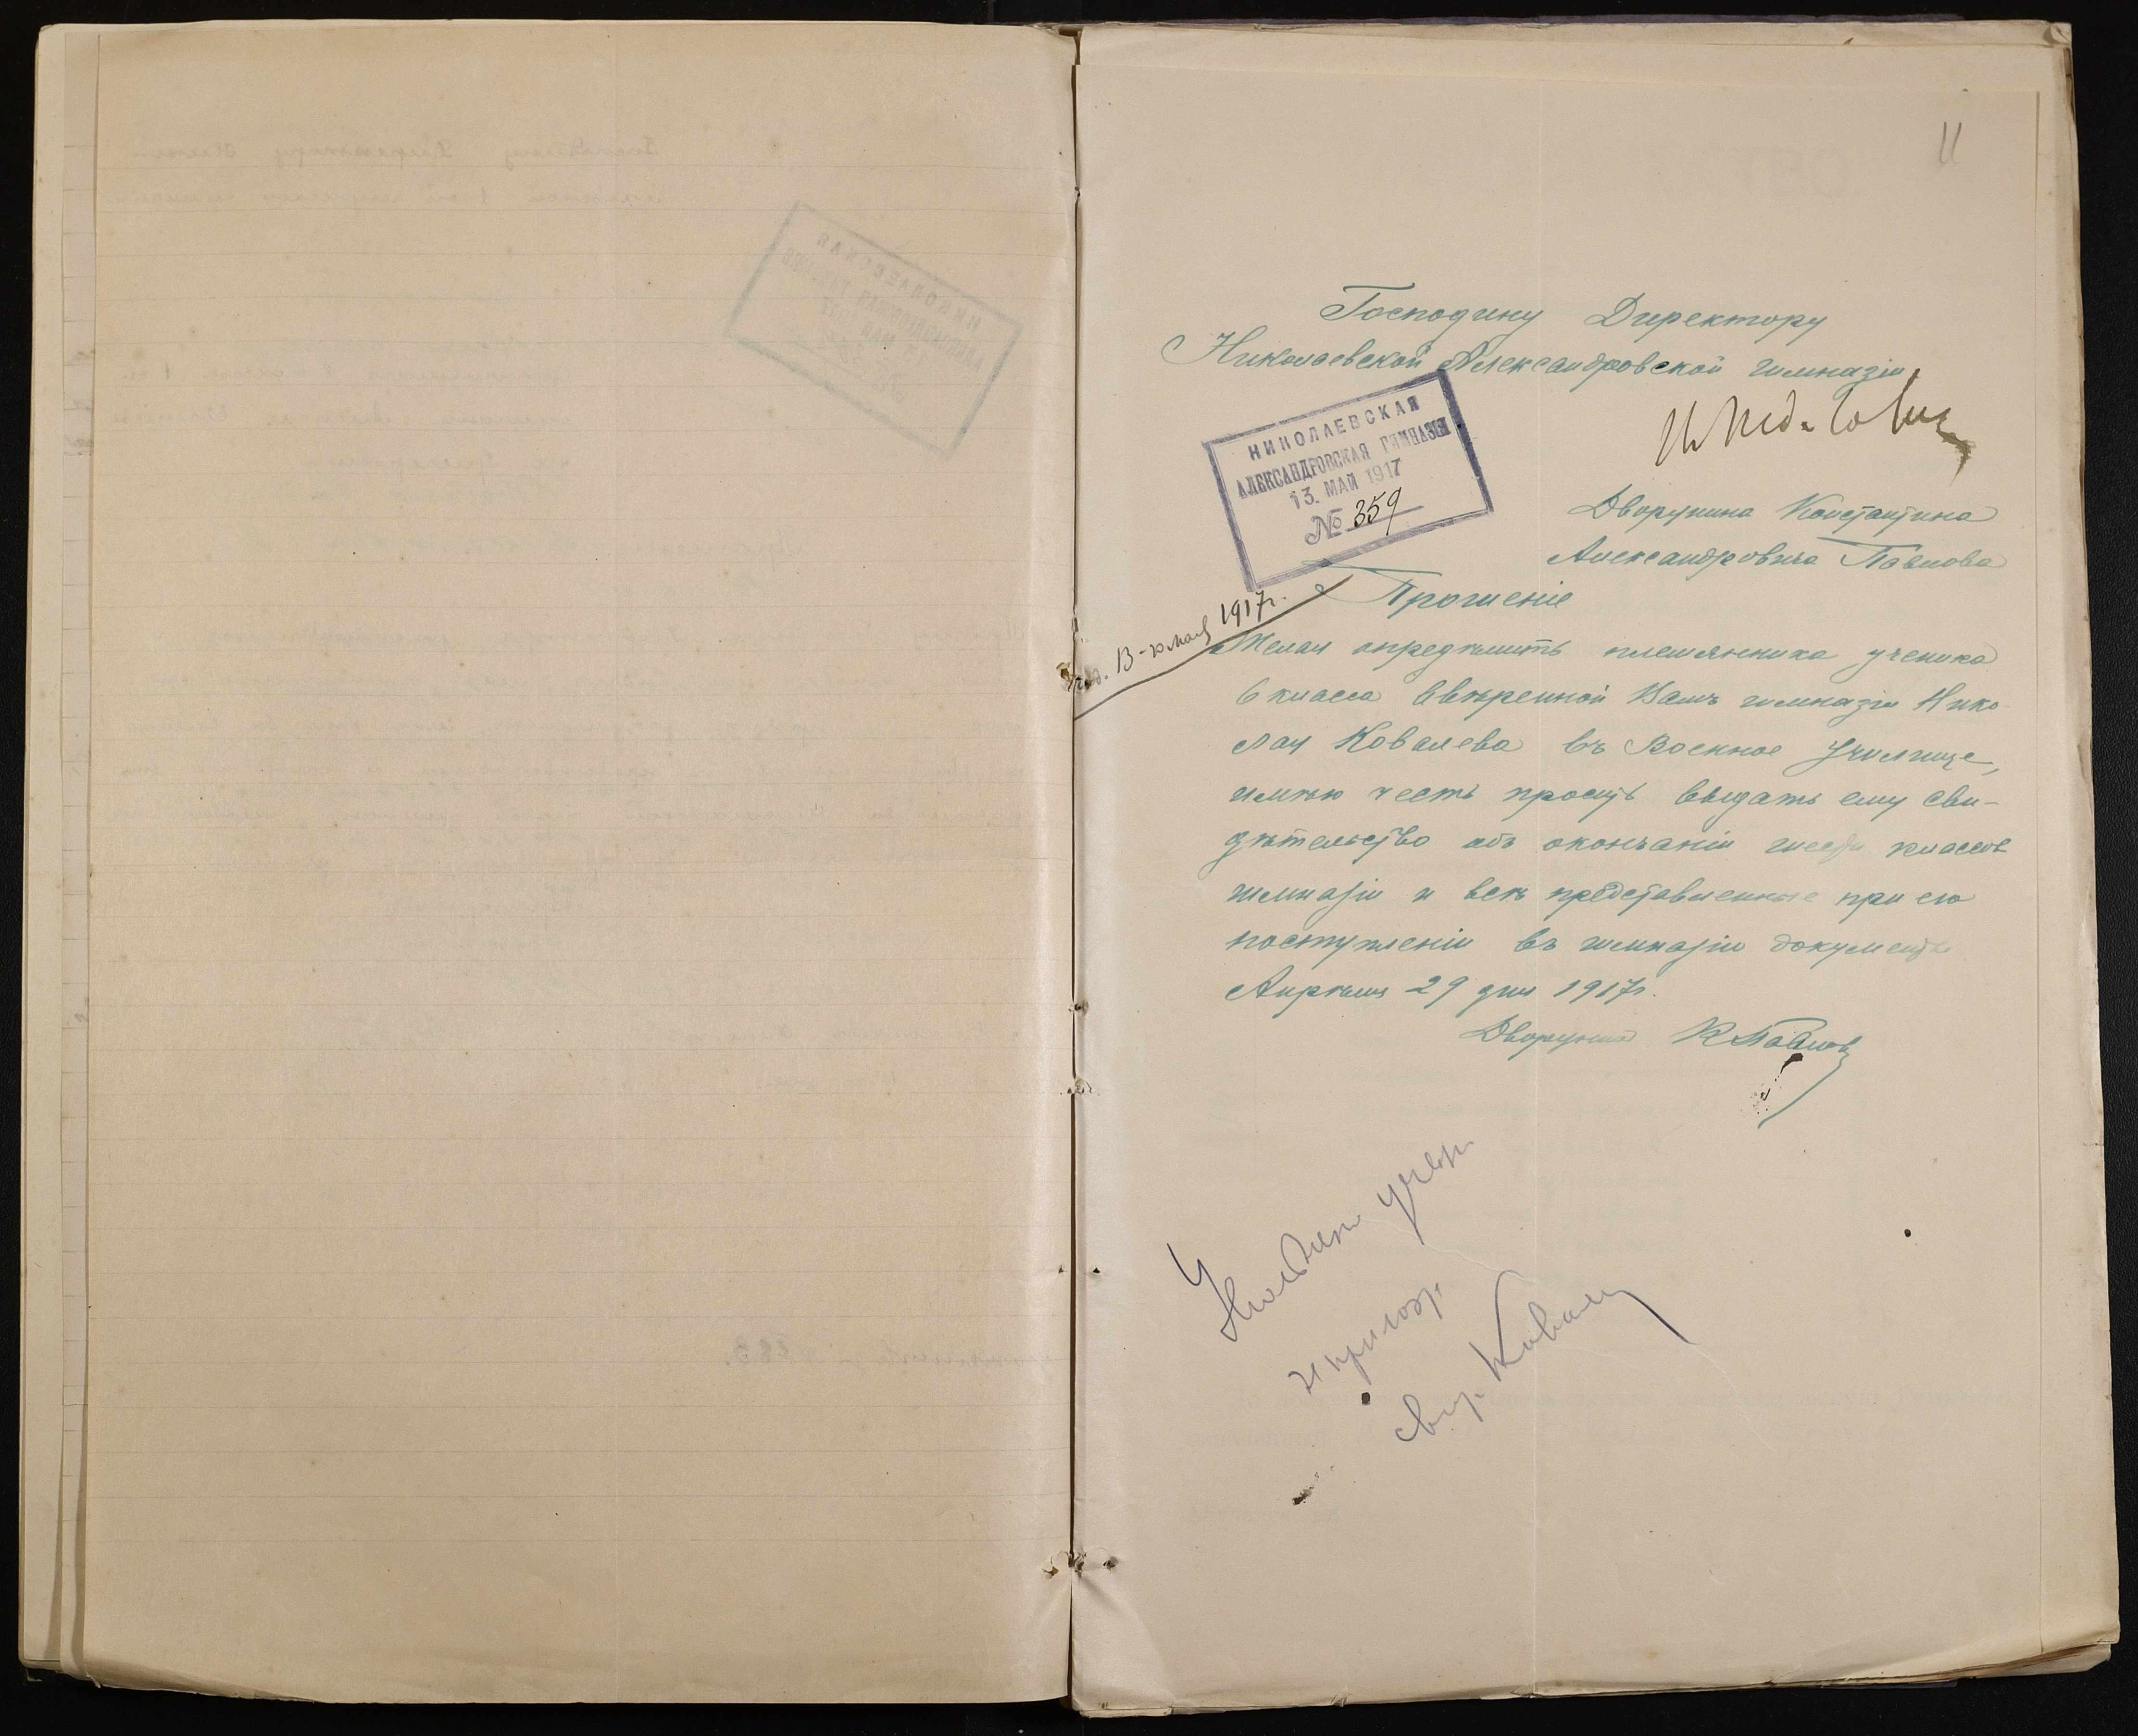 11
Господину Директору
Николаевской Александровской гимназіи
НИКОЛАЕВСКАЯ
АЛЕКСАНДРОВСКАЯ ГИМНАЗІЯ
13. МАЙ 1917
№ 359
Дворянина Константина
Александровича Павлова
Прошеніе
13-го мая 1917г.
Желая опредѣлить племянника ученика
6 класса ввѣренной Вамъ гимназіи Нико
лая Ковалева въ Военное Училище,
имѣю честь просить выдать ему сви-
дѣтельство объ окончаніи шести классов
гимназіи и всѣ представленные при его
поступленіи въ гимназію документы
Апрѣля 29 дня 1917г.
Дворянин К Павловъ